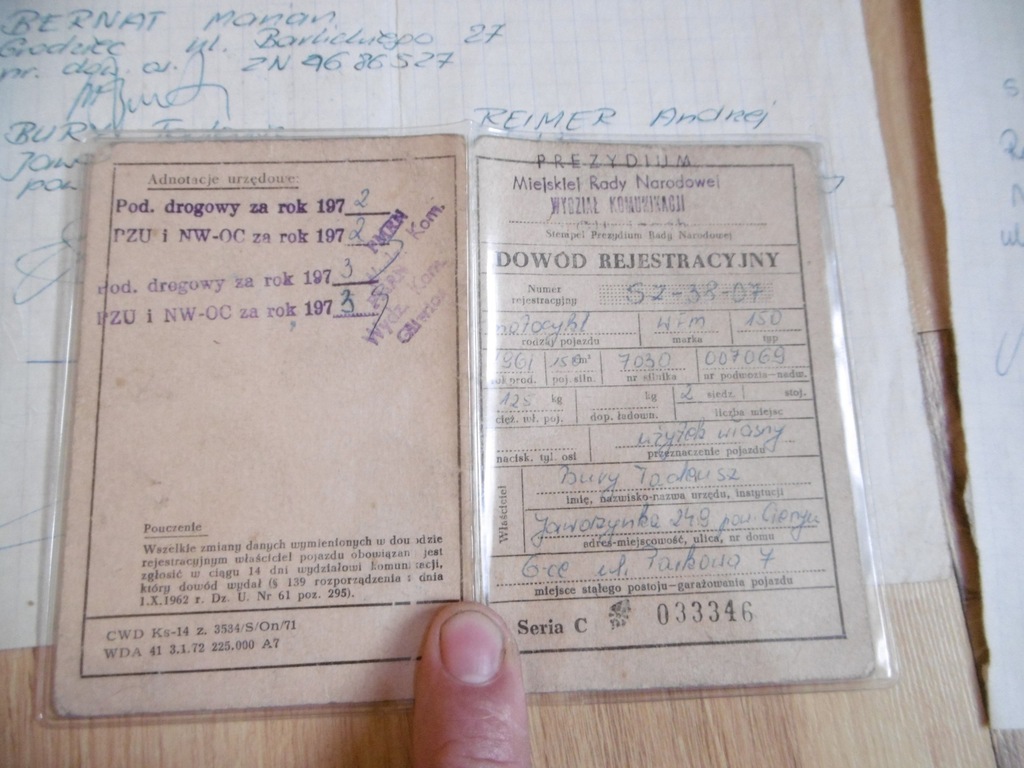 BERNAT Marian
Grodziec ul. Barlickiego 27
nr. dow. os. ZN 4686527
BURY Tadeusz
REIMER Andrzej
Adnotacje urzędowe:
Pod. drogowy za rok 1972
PZU i NW-OC za rok 1972
Pod. drogowy za rok 1973
PZU i NW-OC za rok 1973
Wydz. Kom.
Pouczenie
Wszelkie zmiany danych wymienionych w dowodzie
rejestracyjnym właściciel pojazdu obowiązan jest
zgłosić w ciągu 14 dni wydziałowi komunikacji,
który dowód wydał (§ 139 rozporządzenia z dnia
1.X.1962 r. Dz. U. Nr 61 poz. 295).
CWD Ks-14 z. 3534/S/On/71
WDA 41 3.1.72 225.000 A7
PREZYDIUM
Miejskiej Rady Narodowej
WYDZIAŁ KOMUNIKACJI
Stempel Prezydium Rady Narodowej
DOWÓD REJESTRACYJNY
Numer rejestracyjny SZ-38-07
motocykl WFM 150
rodzaj pojazdu marka typ
1961 150 cm³ 7030 007069
rok prod. poj. siln. nr silnika nr podwozia-nadw.
125 kg kg 2 siedz. stoj.
cięż. wł. poj. dop. ładown. liczba miejsc
użytek własny
nacisk. tyl. osi przeznaczenie pojazdu
Bury Tadeusz
imię, nazwisko-nazwa urzędu, instytucji
Właściciel
Jaworzynka 249 pow. Cieszyn
adres-miejscowość, ulica, nr domu
G-ec ul. Parkowa 7
miejsce stałego postoju-garażowania pojazdu
Seria C 033346